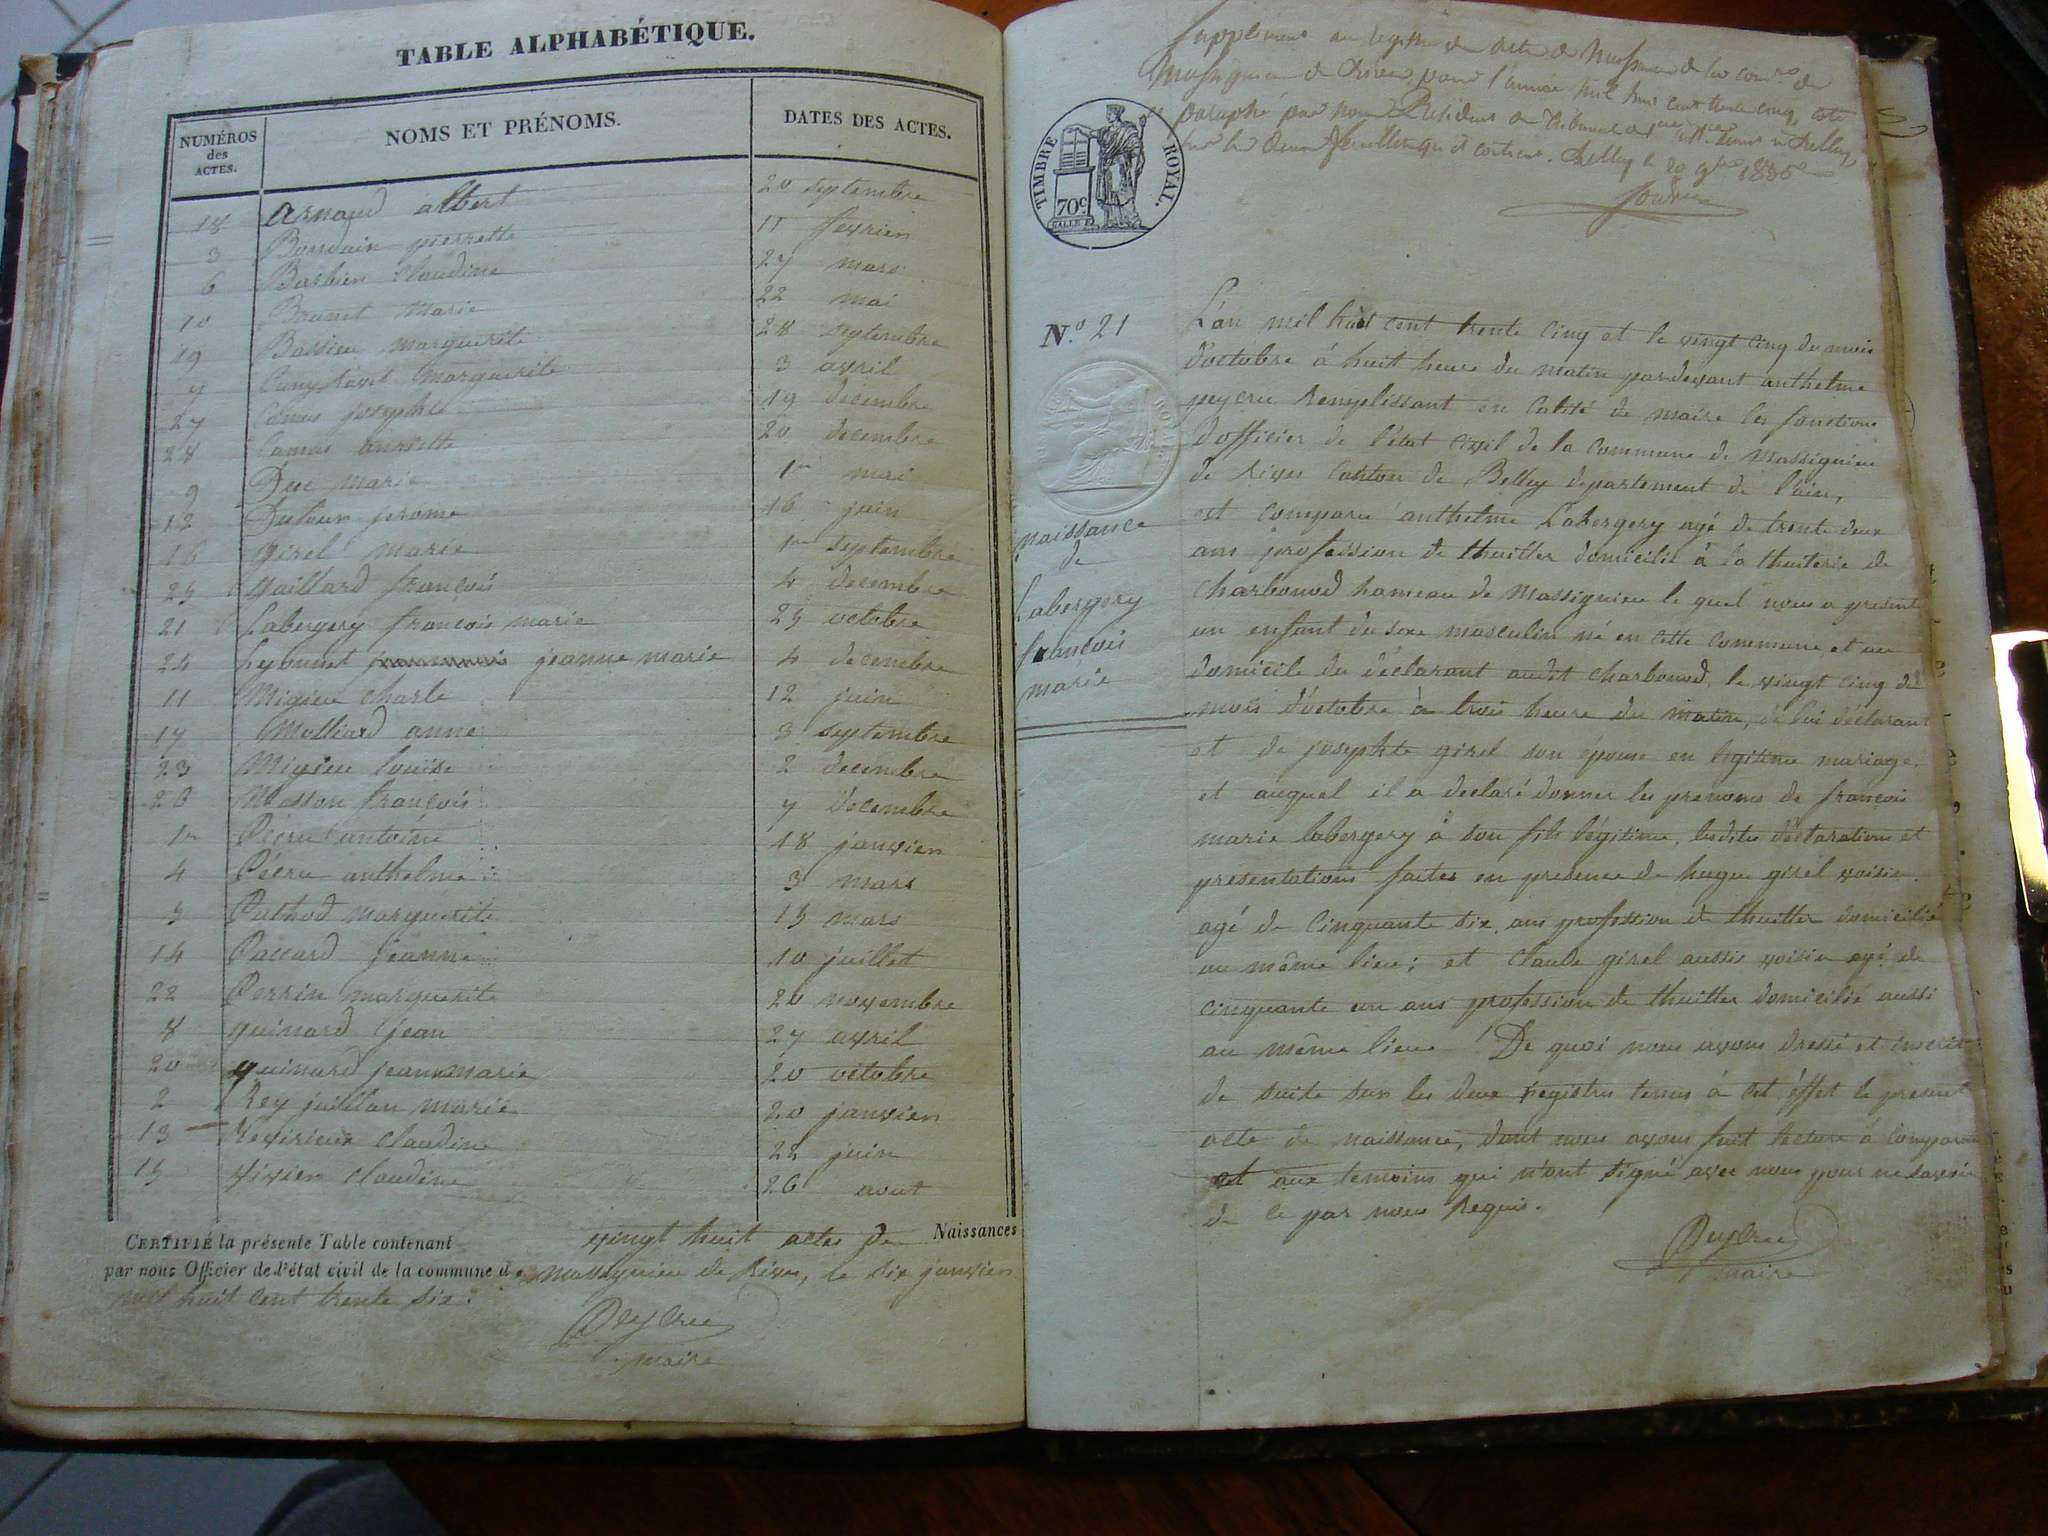 TABLE ALPHABÉTIQUE.
NUMÉROS des ACTES.
NOMS ET PRÉNOMS.
DATES DES ACTES.
18 Arnaud albert 20 septembre
3 Bourdain pierrette 11 fevrier
6 Barbier Claudine 27 mars
10 Brunet Marie 22 mai
19 Bassieu marguerite 28 septembre
7 marguerite 3 avril
27 Camus josephte 19 decembre
28 Camus 20 decembre
9 Duc marie 1er mai
12 Dufour jerome 16 juin
16 girel marie 1er septembre
25 gaillard françois 4 decembre
21 Labergery françois marie 25 octobre
24 Leyonnet jeanne marie 4 decembre
11 Migieu charle 12 juin
17 Molliard anne 3 septembre
23 Migieu louise 2 decembre
26 Masson françois 7 décembre
1er Pécru antoine 18 janvier
4 Pécru anthelme 3 mars
5 Pathod marguerite 15 mars
14 Paccard jeanne 10 juillet
22 Perrin marguerite 20 novembre
8 quinard jean 27 avril
20 quinard jeanmarie 20 octobre
2 Rey juillan marie 20 janvier
13 Revirieux claudine 22 juin
15 vivier claudine 26 aout
CERTIFIÉ la présente Table contenant vingt huit actes de Naissances
par nous Officier de l'état civil de la commune d massignieu de Rives, le six janvier
mil huit cent trente six.
Peycru
maire
Supplément au registre de naissance de la commune de
Massignieu de Rives pour l'année mil huit cent trente cinq, coté
et paraphé par nous Président du Tribunal de Belley
sur les deux feuillets qu'il contient. Belley le 20 9bre 1835
TIMBRE ROYAL.
70c
N.o 21
naissance
de
Labergery
françois
marie
L'an mil huit cent trente cinq et le vingt cinq du mois
d'octobre à huit heure du matin pardevant anthelme
peycru Remplissant en Calité de maire les fonctions
d'officier de l'état civil de la commune de Massignieu
de Rives Canton de Belley departement de l'ain,
est comparu anthelme Labergery agé de trente deux
ans profession de thuillier domicilié à la thuilerie de
Charbonod hameau de Massignieu le quel nous a presenté
un enfant du sexe masculin né en cette commune et au
domicile du déclarant audit charbonod, le vingt cinq du
mois d'octobre à trois heure du matin, de lui déclarant
et de josephte girel son épouse en legitime mariage,
et auquel il a declaré donner les prenoms de françois
marie labergery à son fils légitime, lesdites déclarations et
presentations faites en presence de hugue girel voisin
agé de cinquante six ans profession de thuillier domicilié
au même lieu; et Claude girel aussis voisin agé de
cinquante un ans profession de thuillier domicilié aussi
au même lieu. De quoi nous avons dressé et inscrit
de suite sur les deux registres tenus à cet éffet le present
acte de naissance, dont nous avons fait lecture à comparant
et aux temoins qui n'ont signé avec nous pour ne savoir
de ce par nous Requis.
Peycru
maire